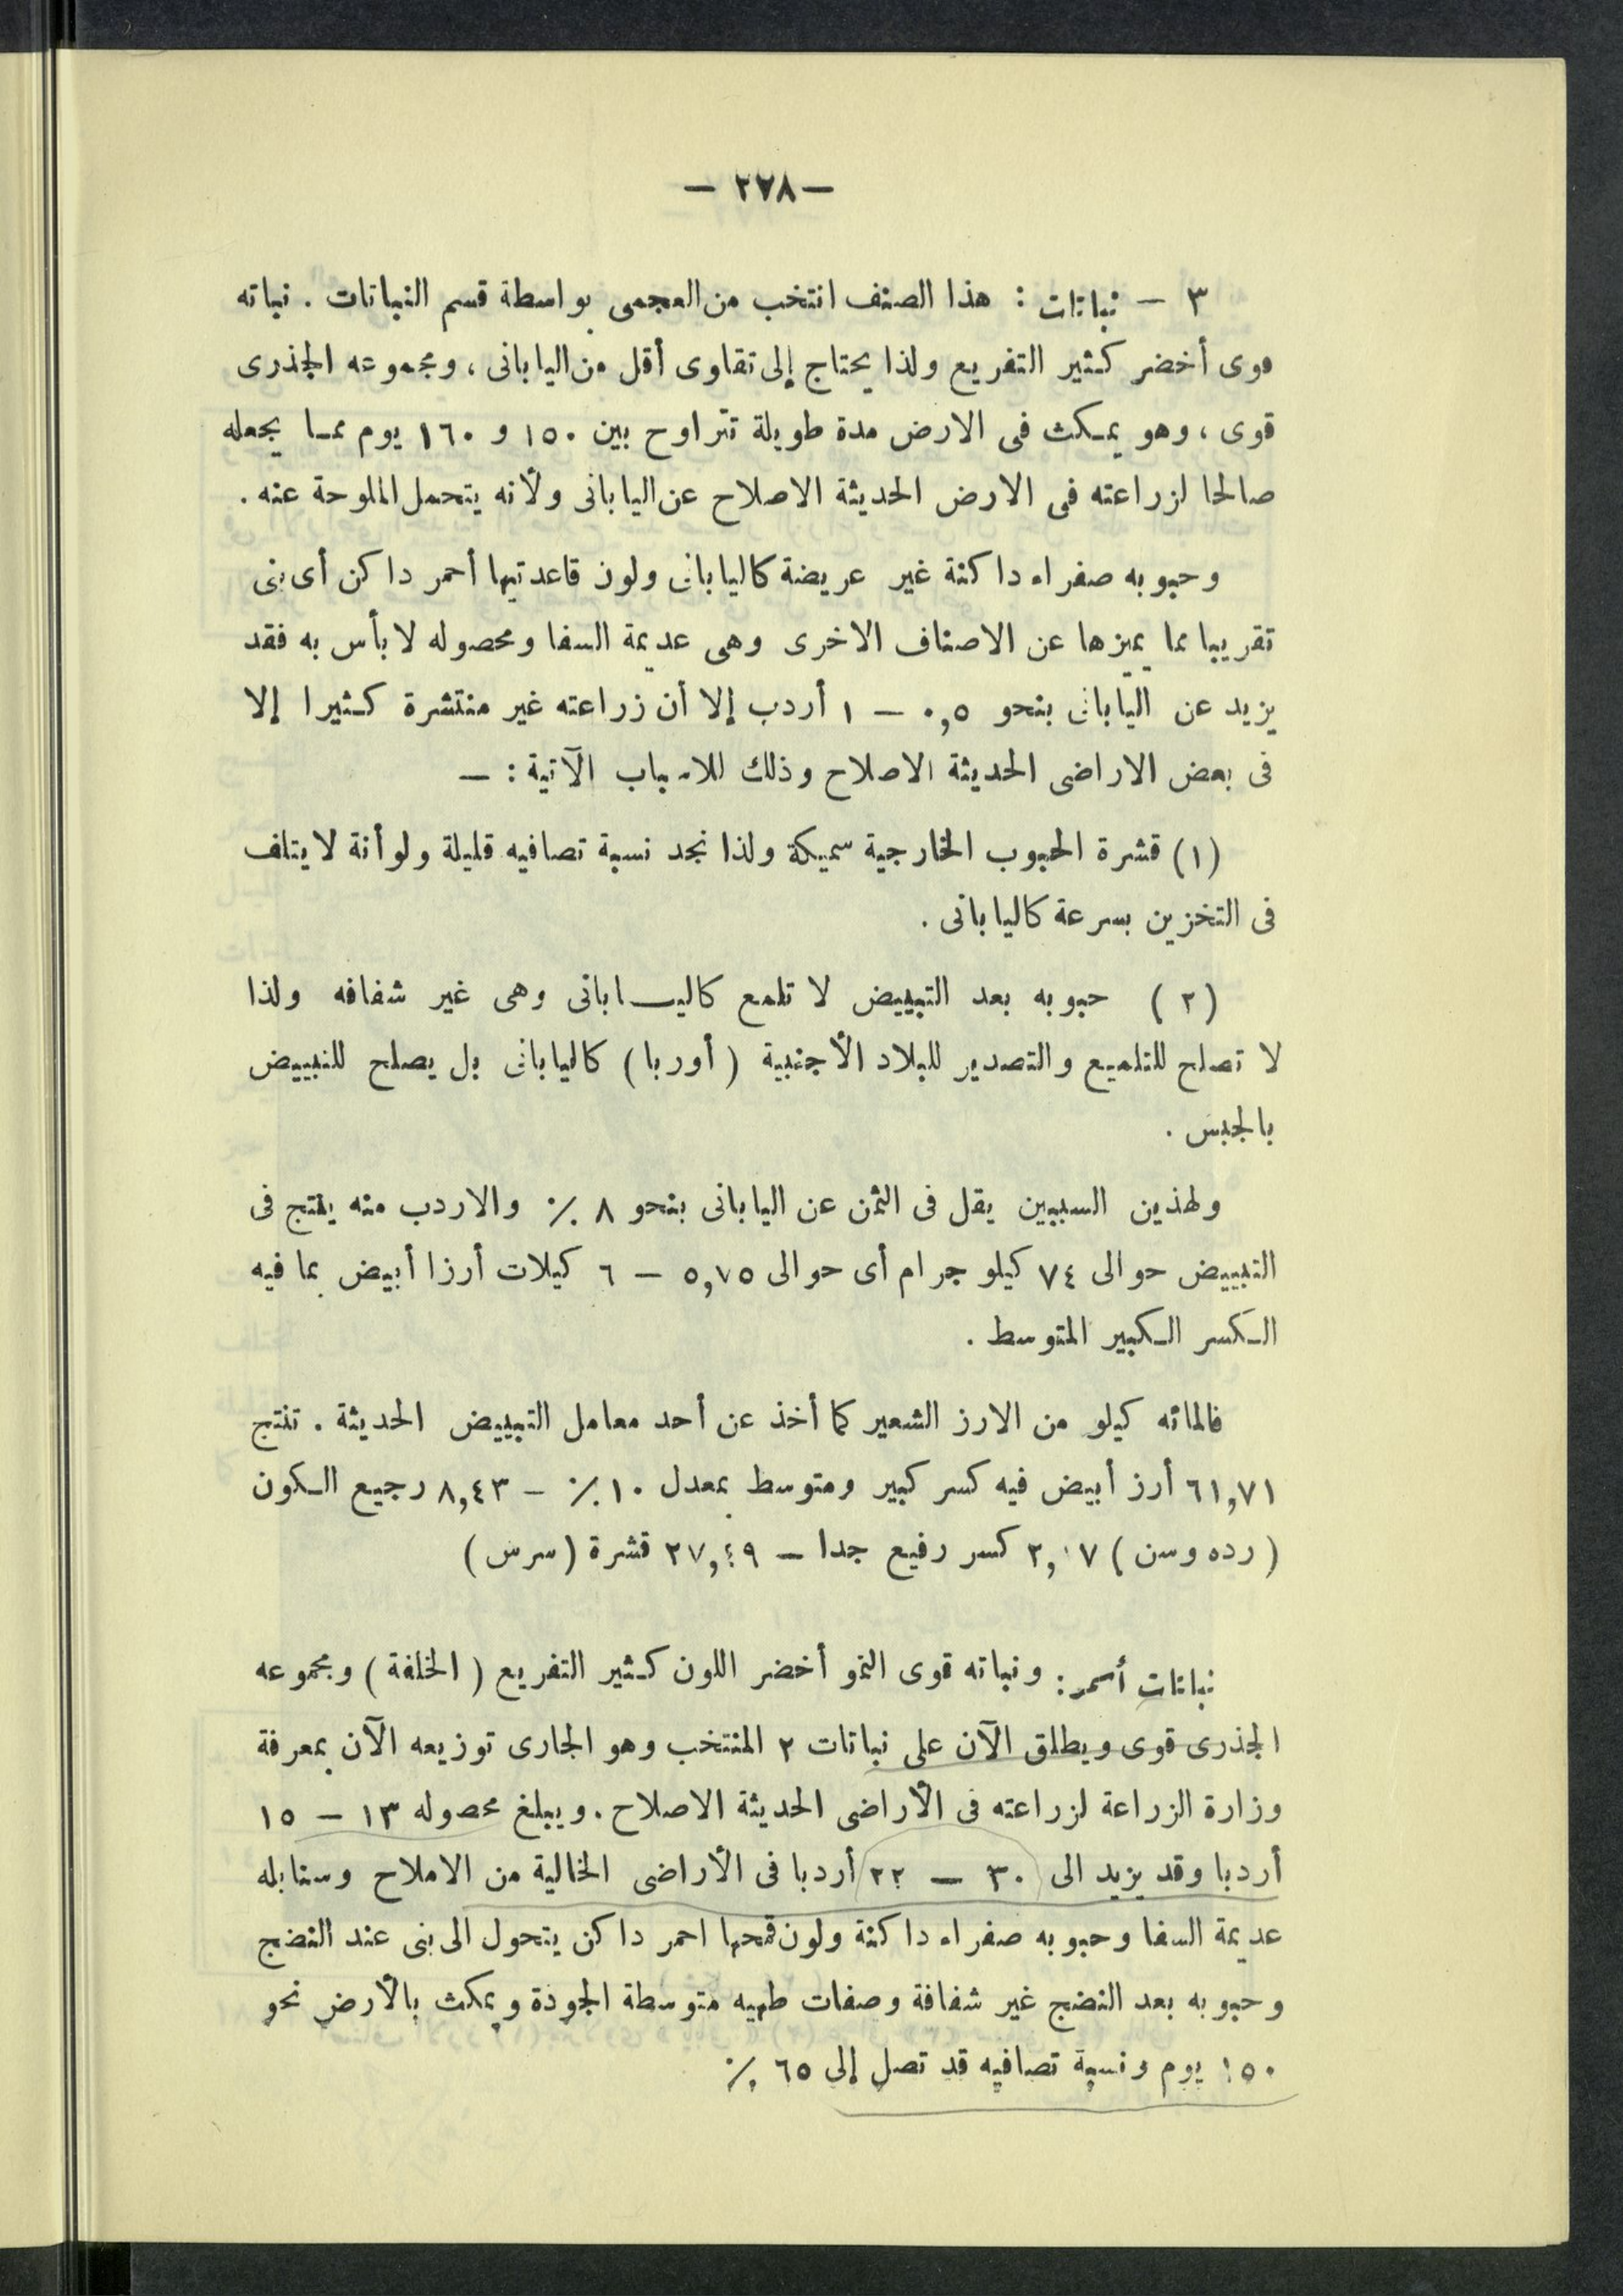 — ٢٧٨ —
٣ — نباتات : هذا الصنف انتخب من العجمى بواسطة قسم النباتات . نباته
قوى أخضر كثير التفريع ولذا يحتاج إلى تقاوى أقل من اليابانى ، ومجموعه الجذرى
قوى ، وهو يمكث فى الارض مدة طويلة تتراوح بين ١٥٠ و ١٦٠ يوم مما يجعله
صالحا لزراعته فى الارض الحديثة الاصلاح عن اليابانى ولأنه يتحمل الملوحة عنه .
وحبوبه صفراء داكنة غير عريضة كاليابانى ولون قاعدتيها أحمر داكن أى بنى
تقريبا مما يميزها عن الاصناف الاخرى وهى عديمة السفا ومحصوله لا بأس به فقد
يزيد عن اليابانى بنحو ٠,٥ — ١ أردب إلا أن زراعته غير منتشرة كثيرا إلا
فى بعض الاراضى الحديثة الاصلاح وذلك للاسباب الآتية : —
(١) قشرة الحبوب الخارجية سميكة ولذا نجد نسبة تصافيه قليلة ولو أنة لا يتلف
فى التخزين بسرعة كاليابانى .
(٢) حبوبه بعد التبييض لا تلمع كاليابانى وهى غير شفافه ولذا
لا تصلح للتلميع والتصدير للبلاد الأجنبية (أوربا) كاليابانى بل يصلح للتبييض
بالجبس .
ولهذين السببين يقل فى الثمن عن اليابانى بنحو ٨ ٪ والاردب منه ينتج فى
التبييض حوالى ٧٤ كيلو جرام أى حوالى ٥,٧٥ — ٦ كيلات أرزا أبيض بما فيه
الكسر الكبير المتوسط .
فالمائه كيلو من الارز الشعير كما أخذ عن أحد معامل التبييض الحديثة . تنتج
٦١,٧١ أرز أبيض فيه كسر كبير ومتوسط بمعدل ١٠ ٪ — ٨,٤٣ رجيع الكون
(رده وسن) ٢,٠٧ كسر رفيع جدا — ٢٧,٤٩ قشرة (سرس)
نباتات أسمر : ونباته قوى النمو أخضر اللون كثير التفريع (الخلفة) ومجموعه
الجذرى قوى ويطلق الآن على نباتات ٢ المنتخب وهو الجارى توزيعه الآن بمعرفة
وزارة الزراعة لزراعته فى الأراضى الحديثة الاصلاح . ويبلغ محصوله ١٣ — ١٥
أردبا وقد يزيد الى ٣٠ — ٢٢ أردبا فى الأراضى الخالية من الاملاح وسنابله
عديمة السفا وحبوبه صفراء داكنة ولون قمحها احمر داكن يتحول الى بنى عند النضج
وحبوبه بعد النضج غير شفافة وصفات طهيه متوسطة الجودة ويمكث بالأرض نحو
١٥٠ يوم ونسبة تصافيه قد تصل إلى ٦٥ ٪